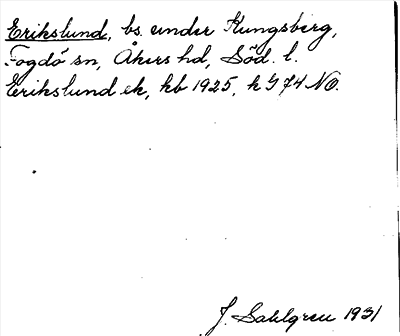 Erikslund, bs. under Kungsberg,
Fogdö sn, Åkers hd, Söd. l.
Erikslund ek, kb 1925, k 574 NO.
J. Sahlgren 1931